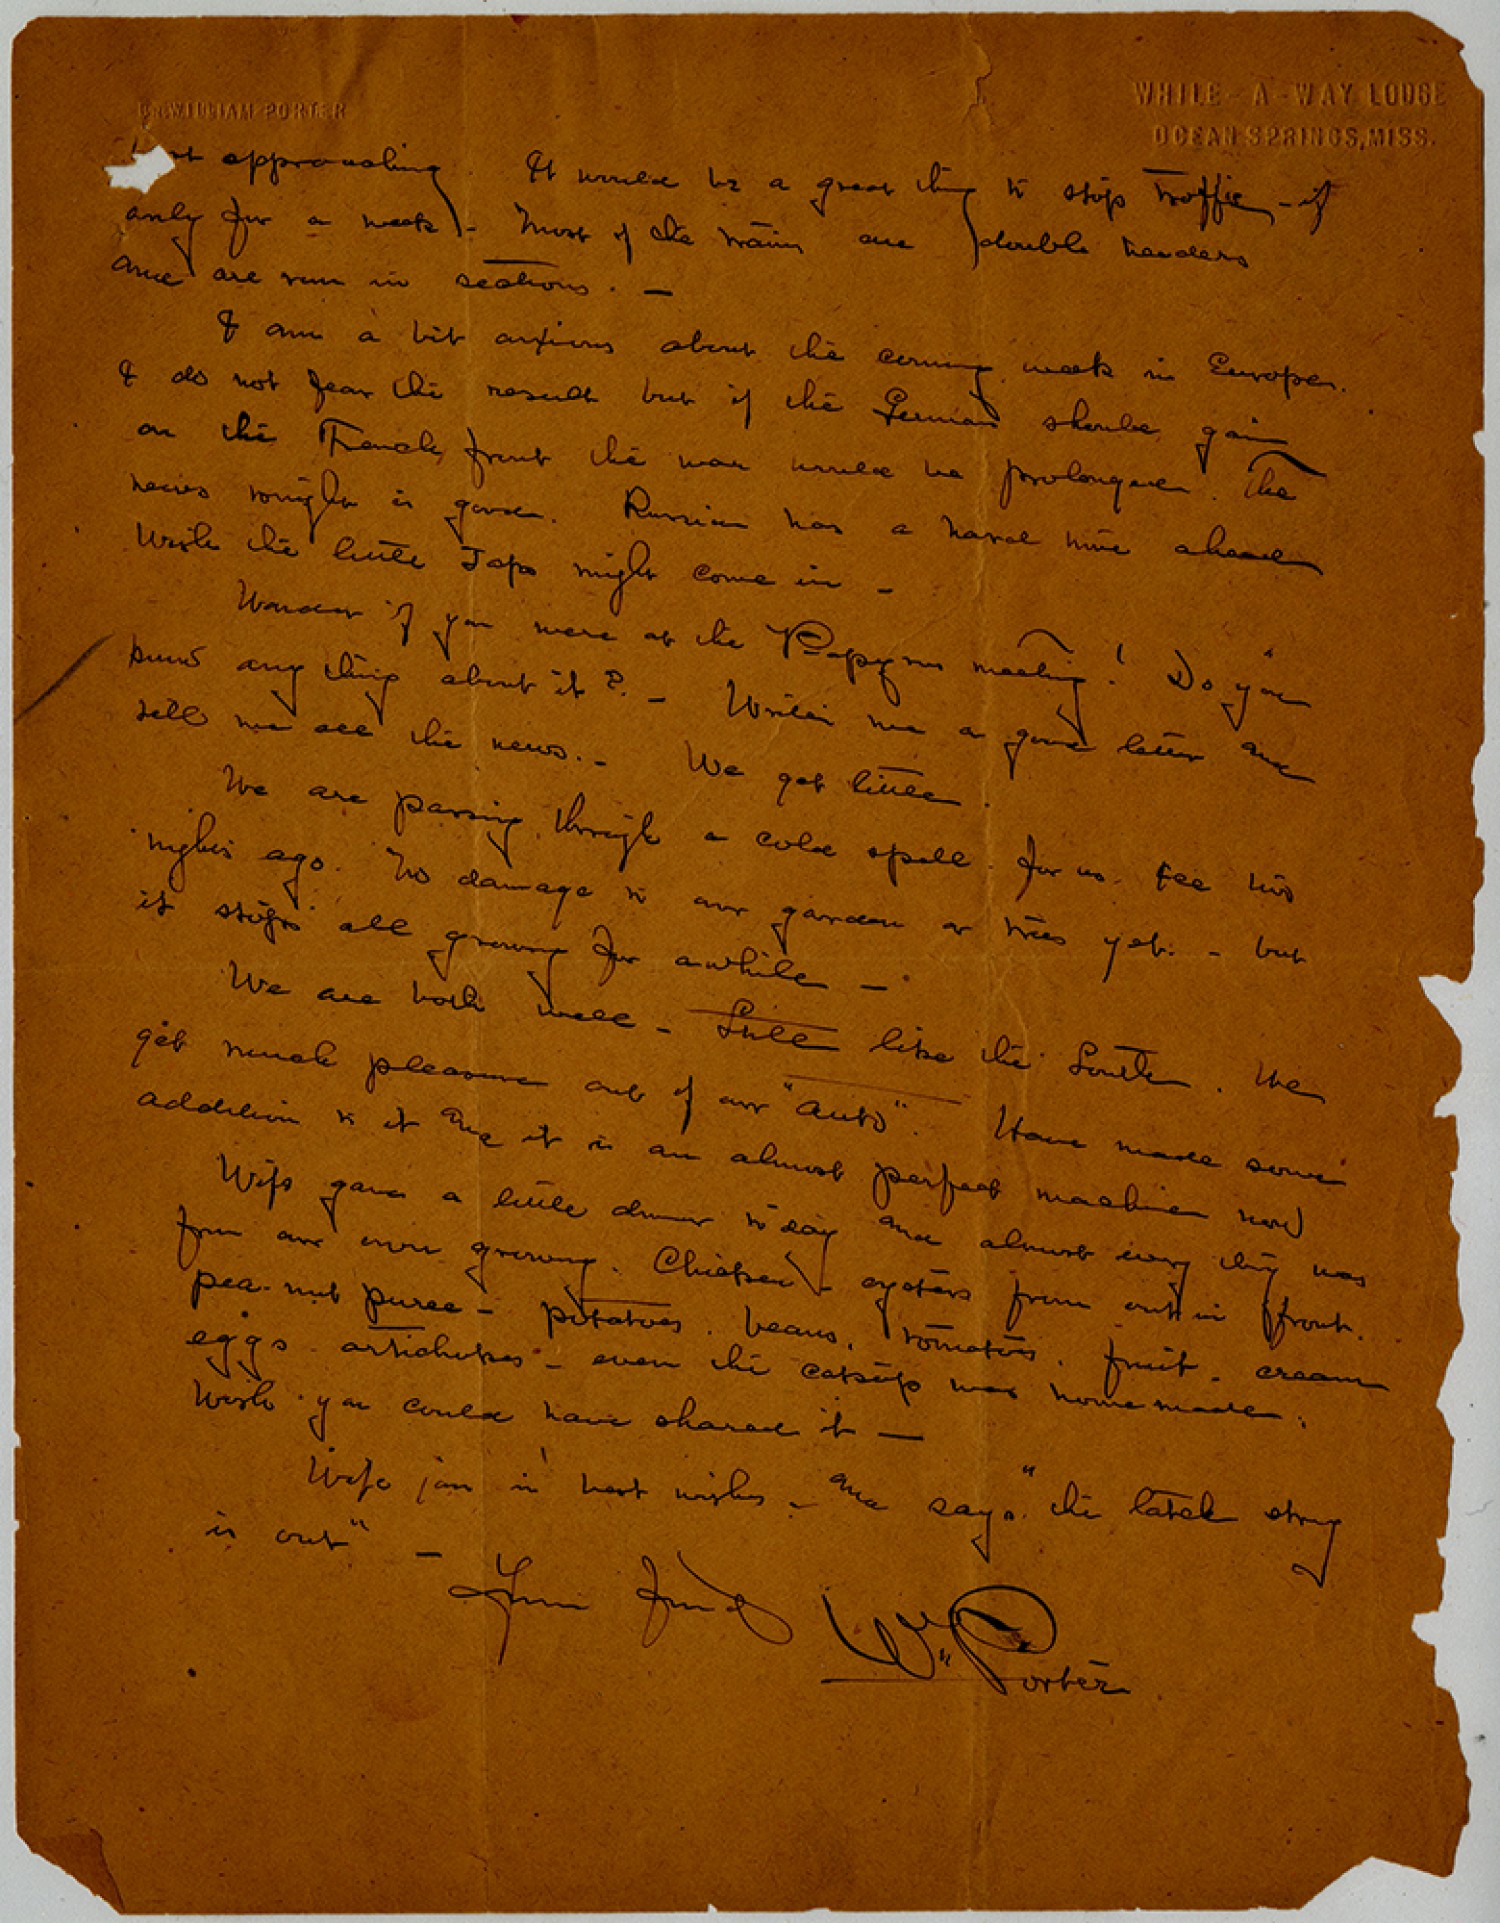 Dr. WILLIAM PORTER
WHILE-A-WAY LODGE
OCEAN SPRINGS, MISS.
approaching. It would be a great thing to stop traffic - if
only for a week - Most of the trains are double headers
and are run in sections. -
I am a bit anxious about the coming week in Europe.
I do not fear the result but if the German should gain
on the French front the war would be prolonged. The
news tonight is good. Russia has a hard time ahead
Wish the little Japs might come in -
Wonder if you were at the Papyrus meeting! Do you
know any thing about it? - Write me a good letter and
tell me all the news. - We get little.
We are passing through a cold spell. for us. Ice two
nights ago. No damage to our garden or trees yet. - but
it stops all growing for awhile -
We are both well - Still like the South. We
get much pleasure out of our "auto". Have made some
addition to it and it is an almost perfect machine now
Wife gave a little dinner today and almost every thing was
from our own growing. Chicken - oysters from out in front.
pea-nut puree - potatoes. beans. tomatoes. fruit. cream
eggs. artichokes - even the catsup was home made.
Wish you could have shared it -
Wife joins in best wishes - and says "the latch string
is out" -
Your friend
Wm Porter